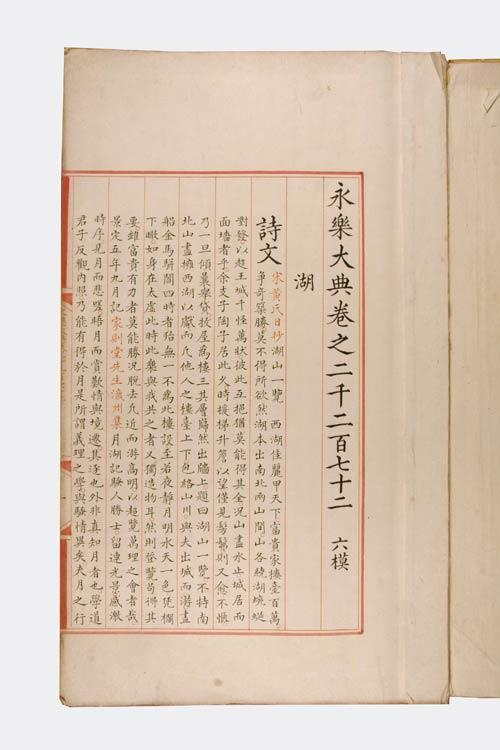 永樂大典卷之二千二百七十二　六模
湖
詩文
宋黃氏日抄湖山一覽　西湖佳麗甲天下富貴家樓臺百萬
爭奇築勝莫不得所欲然湖本出南北兩山間山各繞湖蜿蜒
對發以趍王城千恠萬狀彼此互挹猶莫能得其全况山盡水止城居而
面墻者乎余支子陶子居此久時接梯升簷以望僅見髣髴則又愈不愜
乃一旦傾囊舉貸屋爲樓三其層巋然出牆上題曰湖山一覽不特南
北山盡擁西湖以獻而凡他人之樓臺上下包絡山川與夫出城而游畫
船金馬駢闐四時者殆無一不爲此樓設至若夜靜月明水天一色凭欄
下瞰如身在太虛此時此樂與我共之者又獨造物耳然則登覽苟得其
要雖富貴有力者莫能勝况脫去凡近而游高明以超覽萬理之會者哉
景定五年九月記家則堂先生瀛州集月湖記騷人勝士留連光景感激
時序見月而悲晤月而賞歎情與境遷其逐也外非真知月者也學道
君子反觀內照乃能有得於月是所謂義理之學與騷情異矣夫月之行